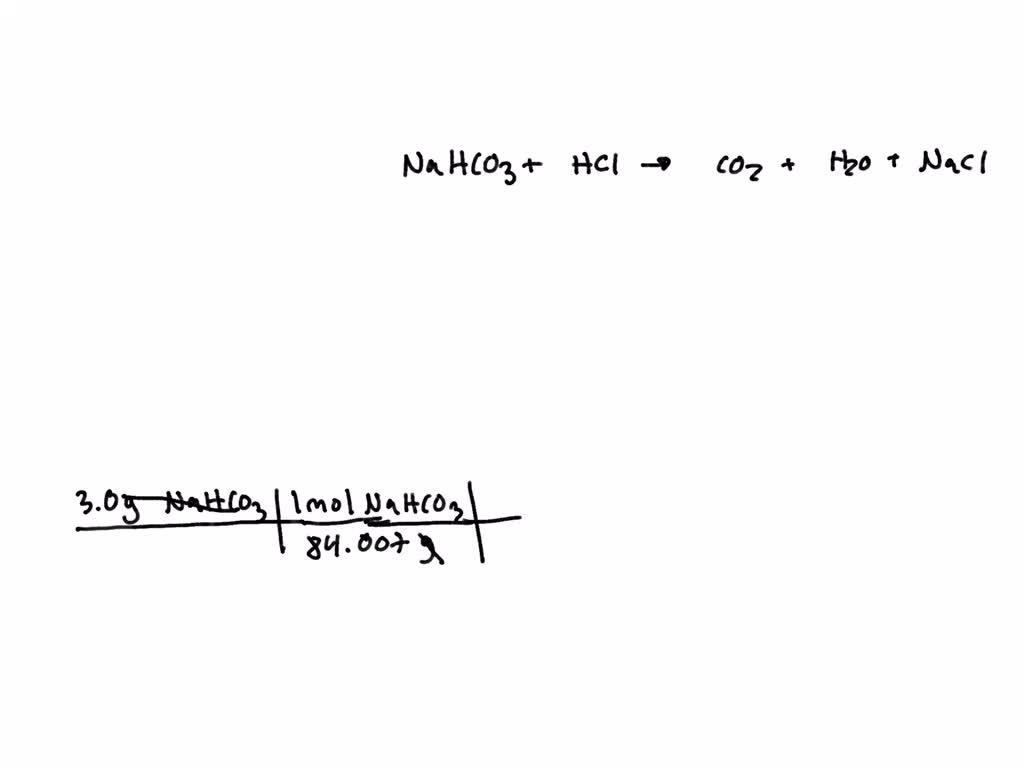 NaHCO3 + HCl → CO2 + H2O + NaCl
3.0g NaHCO3 | 1mol NaHCO3 |
84.007 g